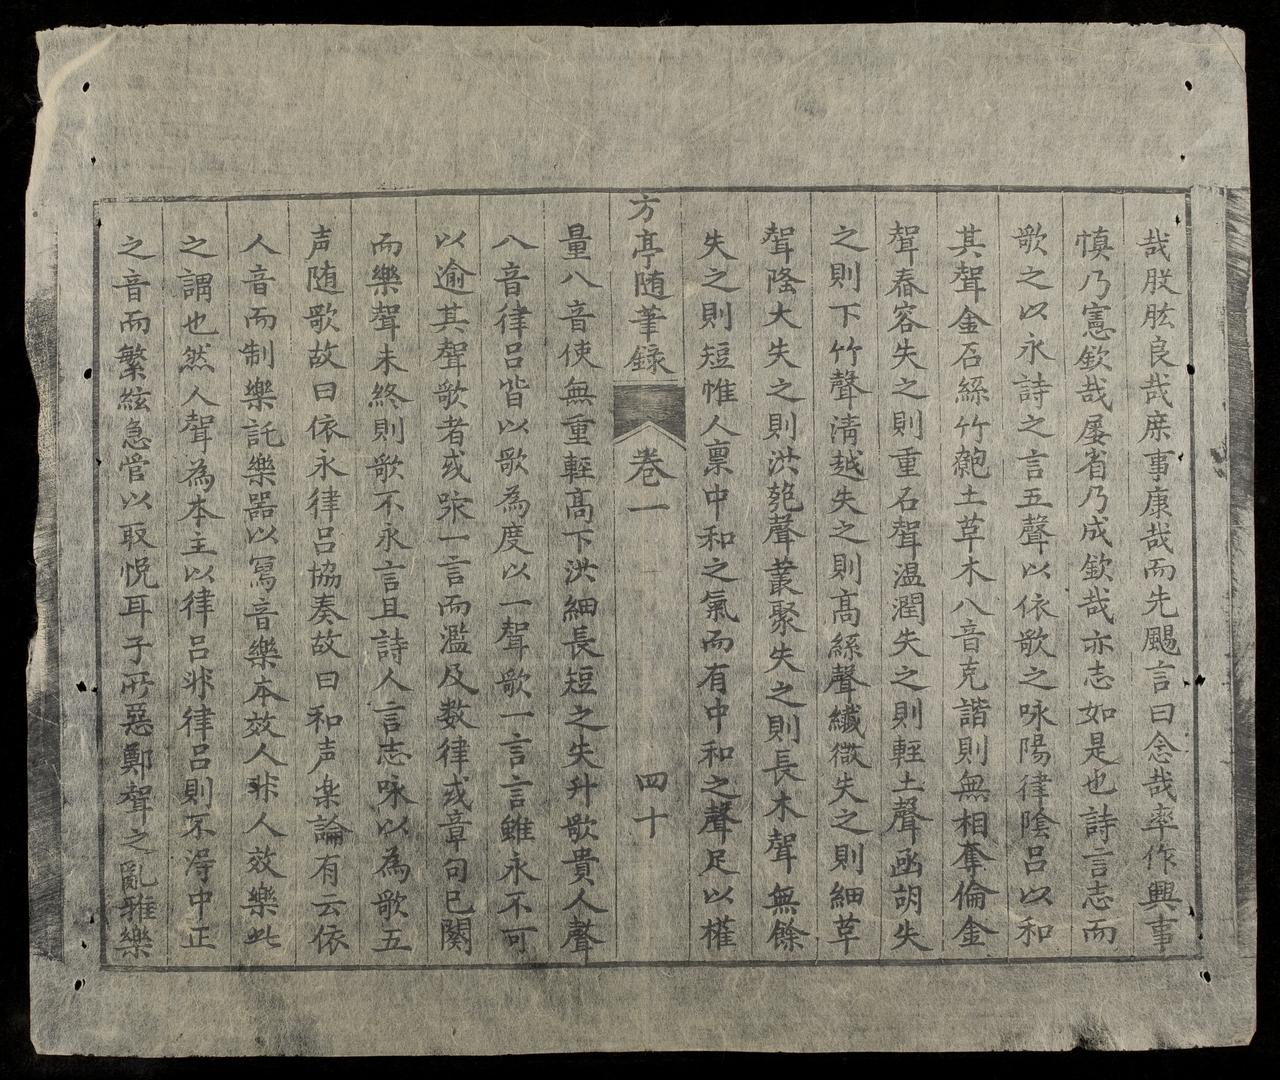 哉股肱良哉庶事康哉而先颺言曰念哉率作興事
慎乃憲欽哉屡省乃成欽哉亦志如是也詩言志而
歌之以永詩之言五聲以依歌之咏陽律陰呂以和
其聲金石絲竹匏土草木八音克諧則無相奪倫金
聲舂容失之則重石聲温潤失之則輊土聲函胡失
之則下竹聲清越失之則髙絲聲纖微失之則細草
聲隆大失之則洪匏聲叢聚失之則長木聲無餘
失之則短惟人禀中和之氣而有中和之聲足以權
方亭随筆録 卷一 四十
量八音使無重輊髙下洪細長短之失升歌貴人聲
八音律呂皆以歌為度以一聲歌一言言雖永不可
以逾其聲歌者或咏一言而濫及数律或章句已闋
而樂聲未終則歌不永言且詩人言志咏以為歌五
声随歌故曰依永律呂協奏故曰和声楽論有云依
人音而制樂託樂噐以寫音樂本效人非人效樂此
之謂也然人聲為本主以律呂非律呂則不淂中正
之音而繁絃急管以取悦耳子所惡鄭聲之亂雅樂